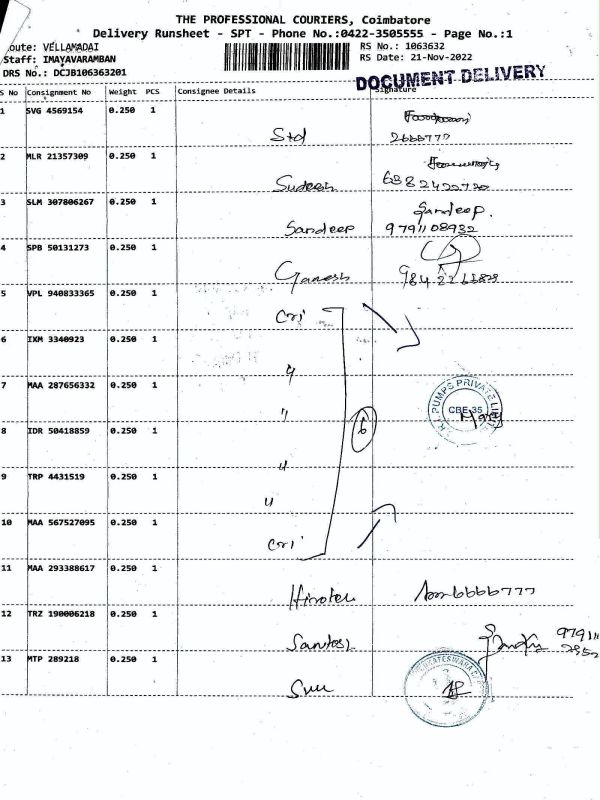 THE PROFESSIONAL COURIERS, Coimbatore
Delivery Runsheet - SPT - Phone No.:0422-3505555 - Page No.:1
oute: VELLAMADAI RS No.: 1063632
Staff: IMAYAVARAMBAN RS Date: 21-Nov-2022
DRS No.: DCJB106363201
DOCUMENT DELIVERY
S No Consignment No Weight PCS Consignee Details Signature
1 SVG 4569154 0.250 1
Std 2666777
2 MLR 21357309 0.250 1
Sudesh
3 SLM 307806267 0.250 1 Sandeep.
Sandeep 9791108932
4 SPB 50131273 0.250 1
Ganesh
5 VPL 940833365 0.250 1
Cri
6 IXM 3340923 0.250 1
"
7 MAA 287656332 0.250 1
"
PUMPS PRIVATE LI
CBE-35
8 IDR 50418859 0.250 1 6
"
9 TRP 4431519 0.250 1
"
10 MAA 567527095 0.250 1
Cri
11 MAA 293388617 0.250 1
12 TRZ 190006218 0.250 1
Santosh
13 MTP 289218 0.250 1